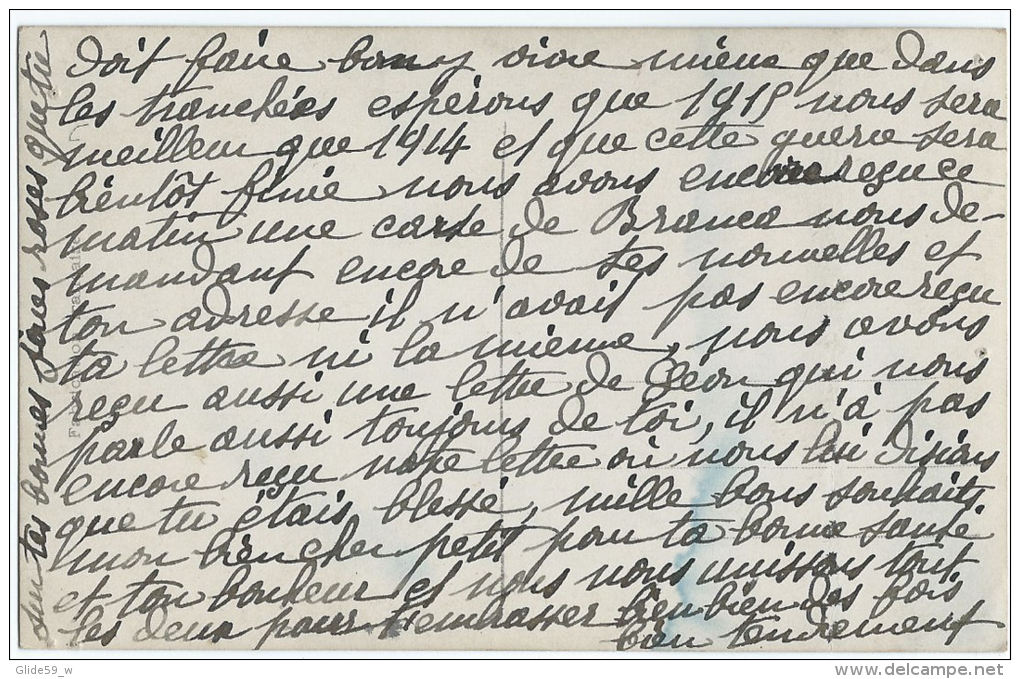 doit faire bon y vivre mieux que dans
les tranchées espérons que 1915 nous sera
meilleur que 1914 et que cette guerre sera
bientôt finie nous avons encore reçu ce
matin une carte de Branca nous de-
mandant encore de tes nouvelles et
ton adresse il n'avait pas encore reçu
ta lettre ni la mienne, nous avons
reçu aussi une lettre de Léon qui nous
parle aussi toujours de toi, il n'à pas
encore reçu notre lettre où nous lui disions
que tu étais blessé, mille bons souhaits
mon bien cher petit pour ta bonne santé
et ton bonheur et nous nous unissons tout
les deux pour t'embrasser bien bien des fois
bien tendrement
sur tes bonnes joues roses
Fabrication Française
Glide59_w
delcampe.net